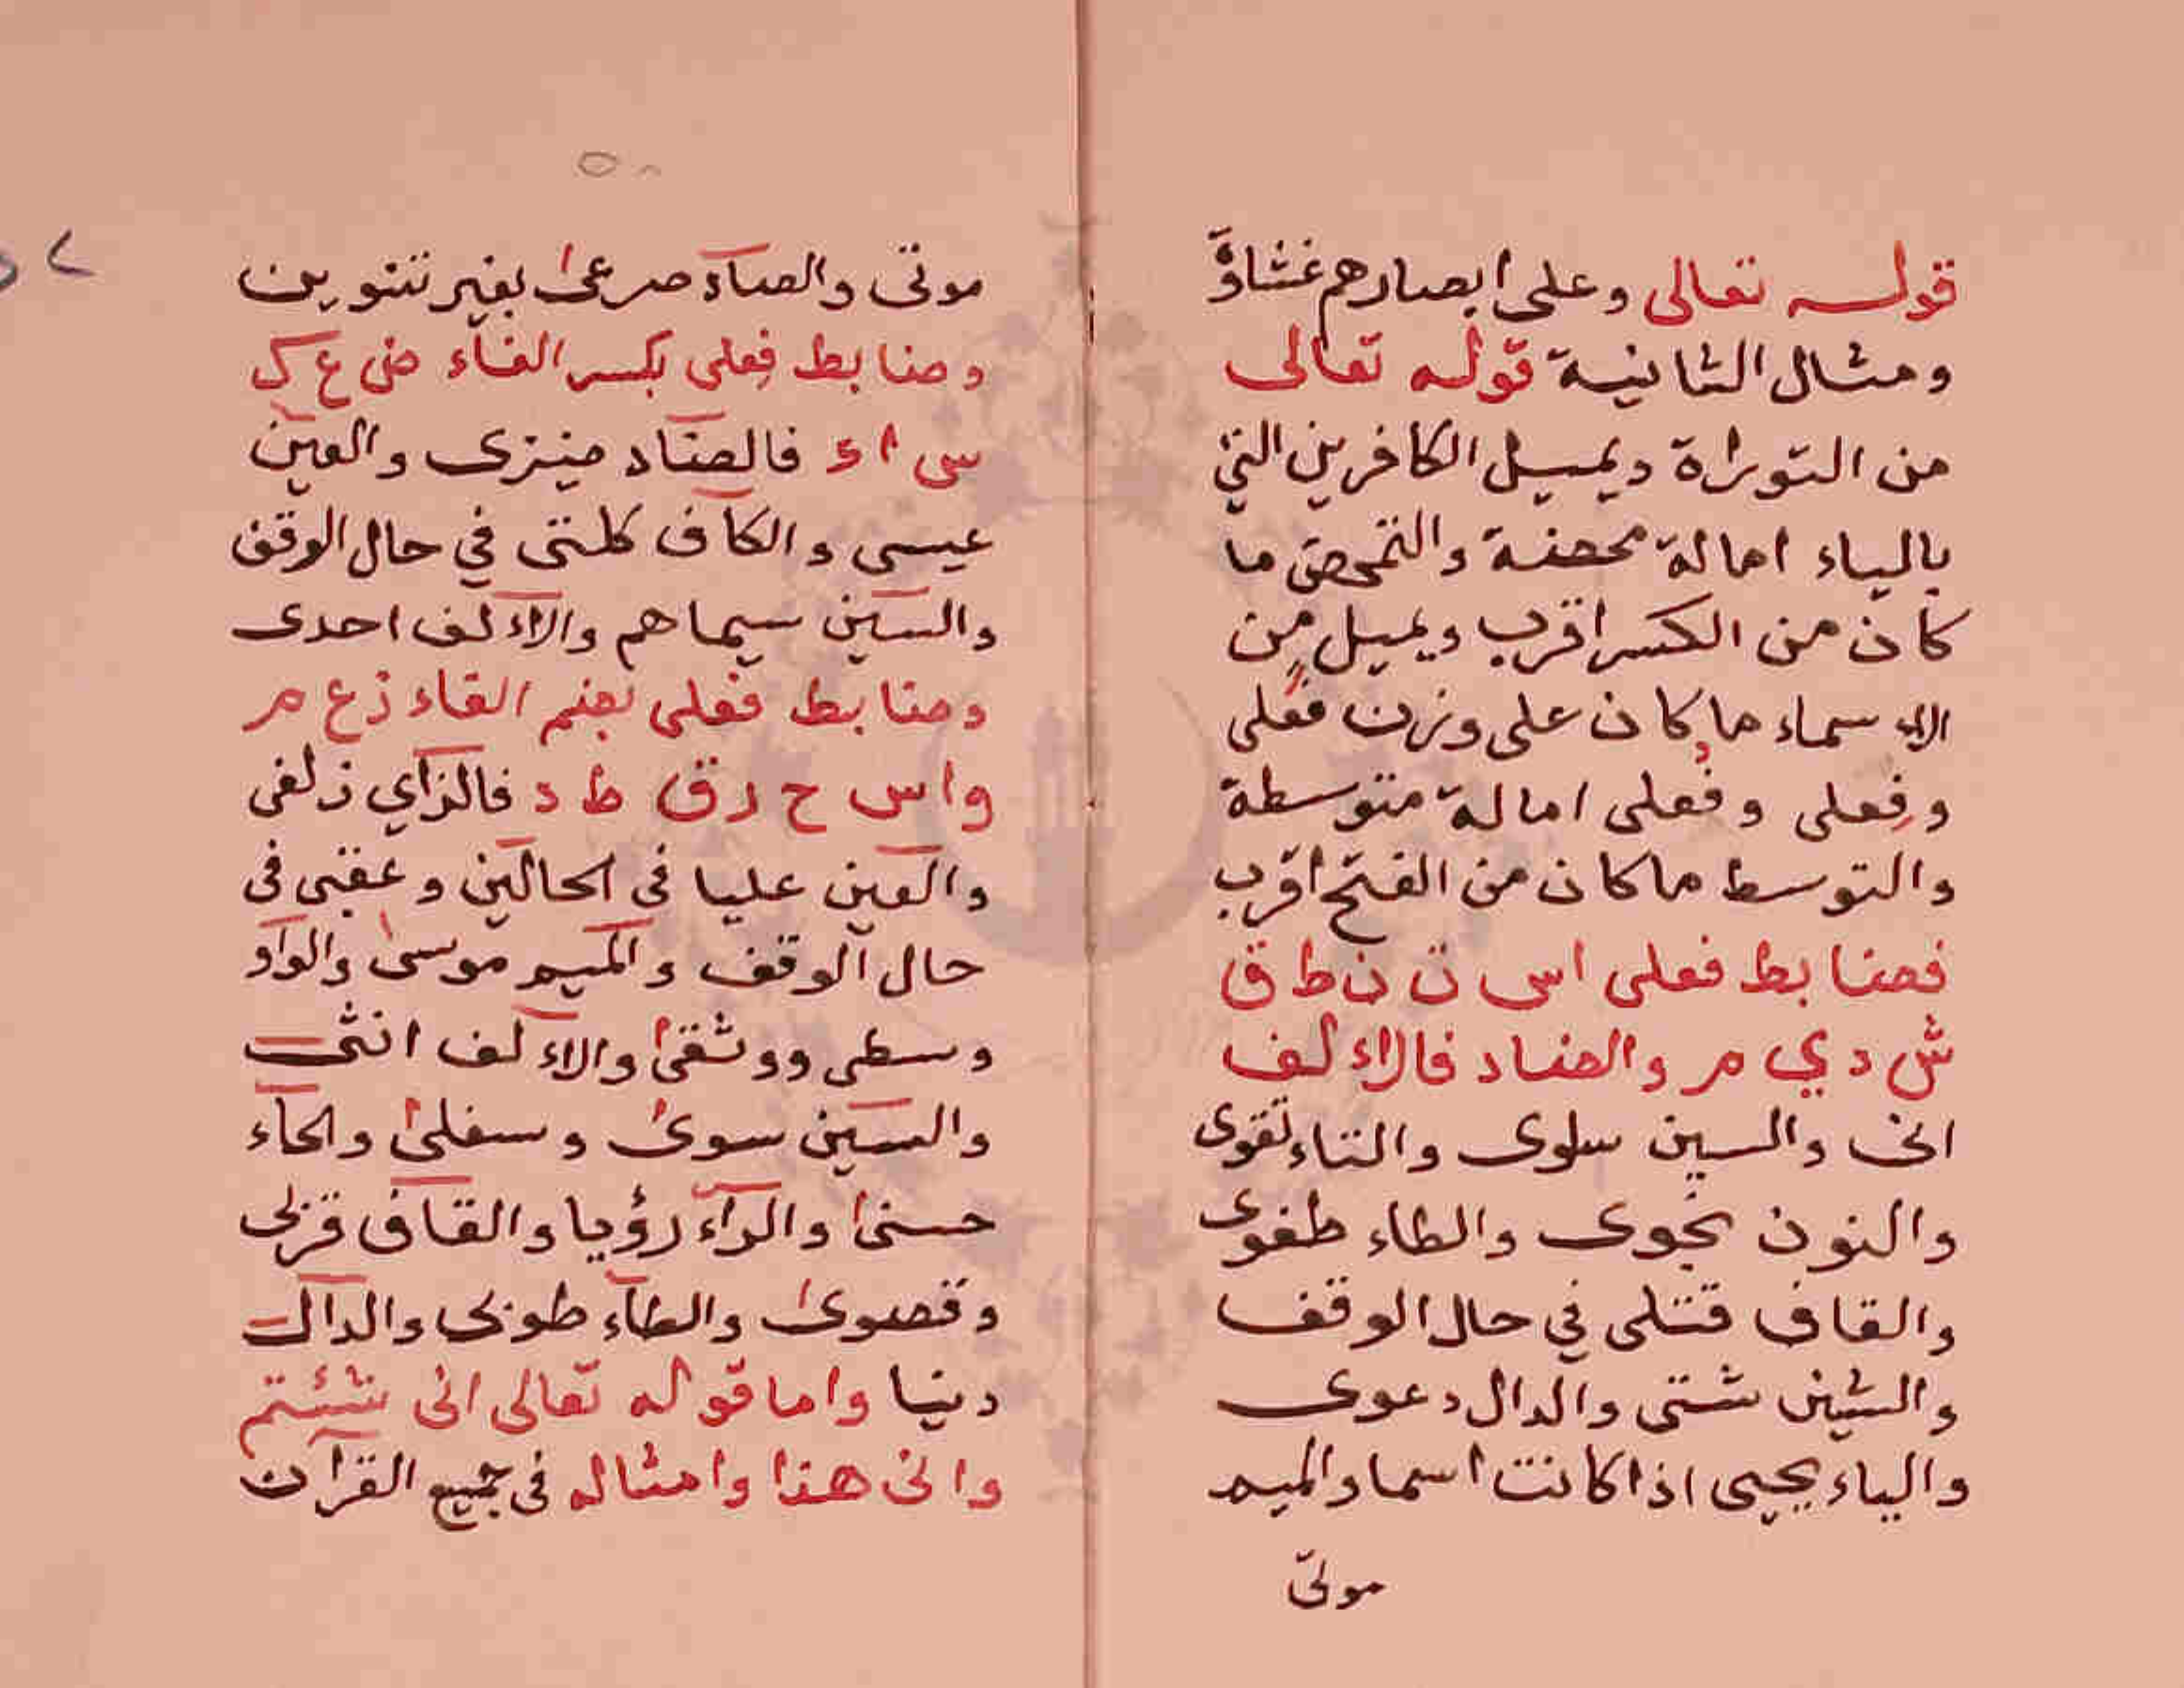 قوله تعالى وعلى ابصارهم غشاوة
ومثال الثانية قوله تعالى
من التوراة ويميل الكافرين التي
بالياء امالة محضة والتمحض ما
كان من الكسر اقرب ويميل من
الاءسماء ما كان على وزن فعلى
وفعلى وفعلى امالة متوسطة
والتوسط ما كان من الفتح اقرب
فضابط فعلى ا س ت ن ط ق
ش د ي م والضاد فالاءلف
انى والسين سلوى والتاء تقوى
والنون نجوى والطاء طغوى
والقاف قتلى في حال الوقف
والشين شتى والدال دعوى
والياء يحيى اذا كانت اسما والميم
موتى
٥٠
موتى والصاد صرعى بغير تنوين
وضابط فعلى بكسر الفاء ض ع ك
س ا ء فالضاد ضيزى والعين
عيسى والكاف كلتى في حال الوقف
والسين سيماهم والاءلف احدى
وضابط فعلى بضم الفاء ز ع م
و ا س ح ر ق ط د فالزاي زلفى
والعين عليا في الحالين وعقبى في
حال الوقف والميم موسى والواو
وسطى ووثقى والاءلف انثى
والسين سوى وسفلى والحاء
حسنى والراء رؤيا والقاف قربى
وقصوى والطاء طوبى والدال
دنيا واما قوله تعالى انى شئتم
وانى هذا وامثاله في جميع القرآن